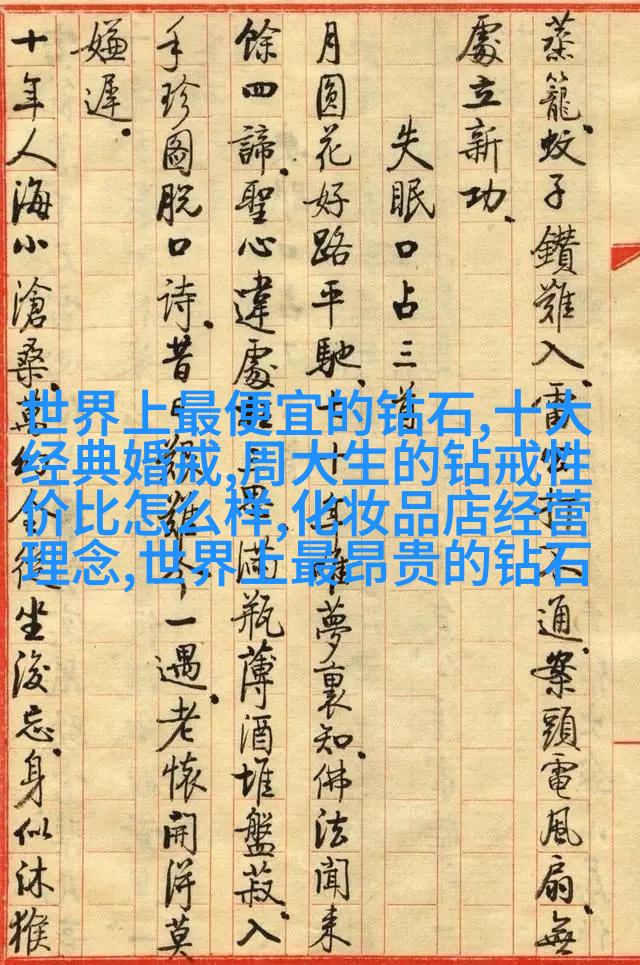 蒸籠。蚊子鑽難入。不通。案頭電風扇。無
處立新功。
失眠口占三首
月圓花好路平馳。十年夢裏知。佛法聞來
餘四諦。聖心違處滿瓶薄酒堆盤菽。入
手珍圖脫口詩。昔日難一遇。老懷開得莫
嫌遲。
十年人海小滄桑。萬坐後忘。身似沐猴
世界上最便宜的钻石,十大
经典婚戒,周大生的钻戒性
价比怎么样,化妆品店经营
理念,世界上最昂贵的钻石